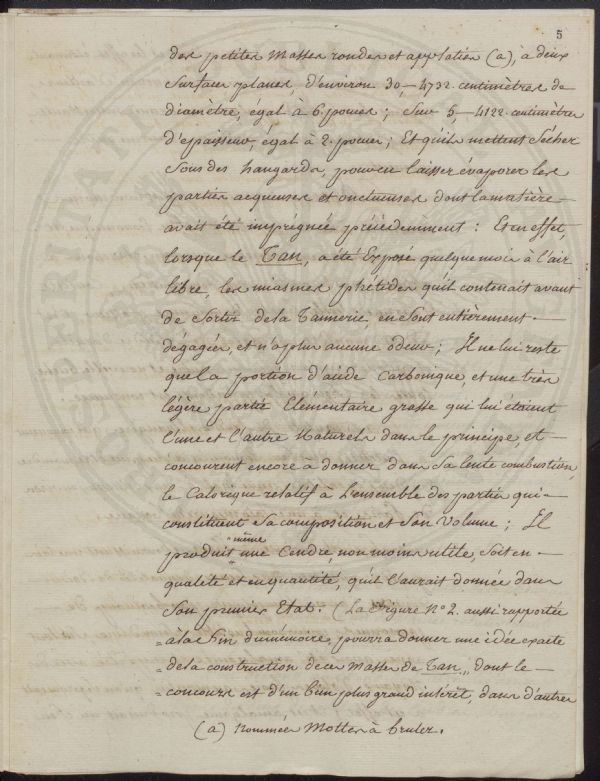 5
des petites Masses rondes et applaties (a), à deux
Surfaces planes, d'environ 30,-4732 centimètres de
diamètre, égal à 6 pouces; Sur 5,-4122 centimètres
d'épaisseur, égal à 2 pouces; Et qu'ils mettent Sécher
Sous des hangards, pour en laisser évaporer les
parties acqueuses et onctueuses dont la matière
avait été imprégnée précédemment: Et en effet,
lorsque le Tan, a été Exposé quelque mois à l'air
libre, les miasmes phétides qu'il contenait avant
de Sortir de la Tannerie, en Sont entièrement
dégagées, et n'a plus aucune odeur; Il ne lui reste
que la portion d'acide Carbonique, et une très
légère partie Elémentaire grasse qui lui étoient
l'une et l'autre Naturels dans le principe, et
concourent encore à donner dans Sa lente combustion,
le Calorique relatif à l'ensemble des parties qui
constituent Sa composition et Son Volume; Il
produit même une Cendre, non moins utile, soit en
qualité et en quantité, qu'il l'aurait donnée dans
Son premier Etat. (La Figure N° 2. aussi rapportée
à la Fin du mémoire, pourra donner une idée exacte
de la construction de ces Masses de Tan,, dont le
concours est d'un bien plus grand intérêt, dans d'autres
(a) Nommées Mottes à bruler.